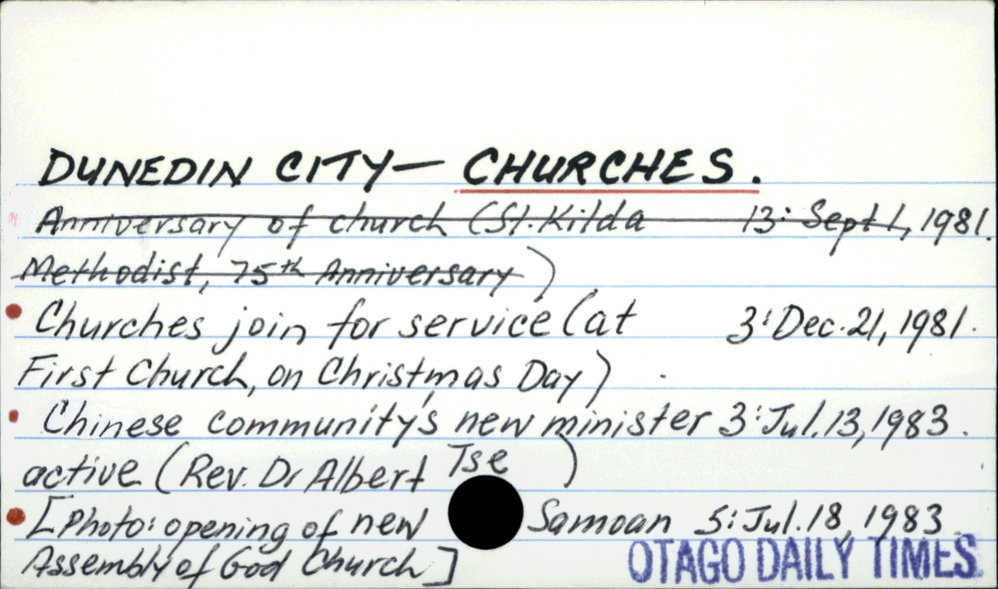 DUNEDIN CITY— CHURCHES.
Anniversary of church (St. Kilda 13: Sept 1, 1981.
Methodist, 75th Anniversary)
Churches join for service (at 3: Dec. 21, 1981.
First Church, on Christmas Day)
Chinese community's new minister 3: Jul. 13, 1983.
active (Rev. Dr Albert Tse)
[Photo: opening of new Samoan 5: Jul. 18, 1983
Assembly of God Church]
OTAGO DAILY TIMES.